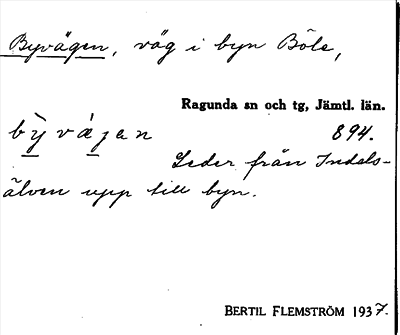 Byvägen, väg i byn Böle,
Ragunda sn och tg, Jämtl. län.
bỳ vä̀jen 894.
Leder från Indals-
älven upp till byn.
BERTIL FLEMSTRÖM 1937.